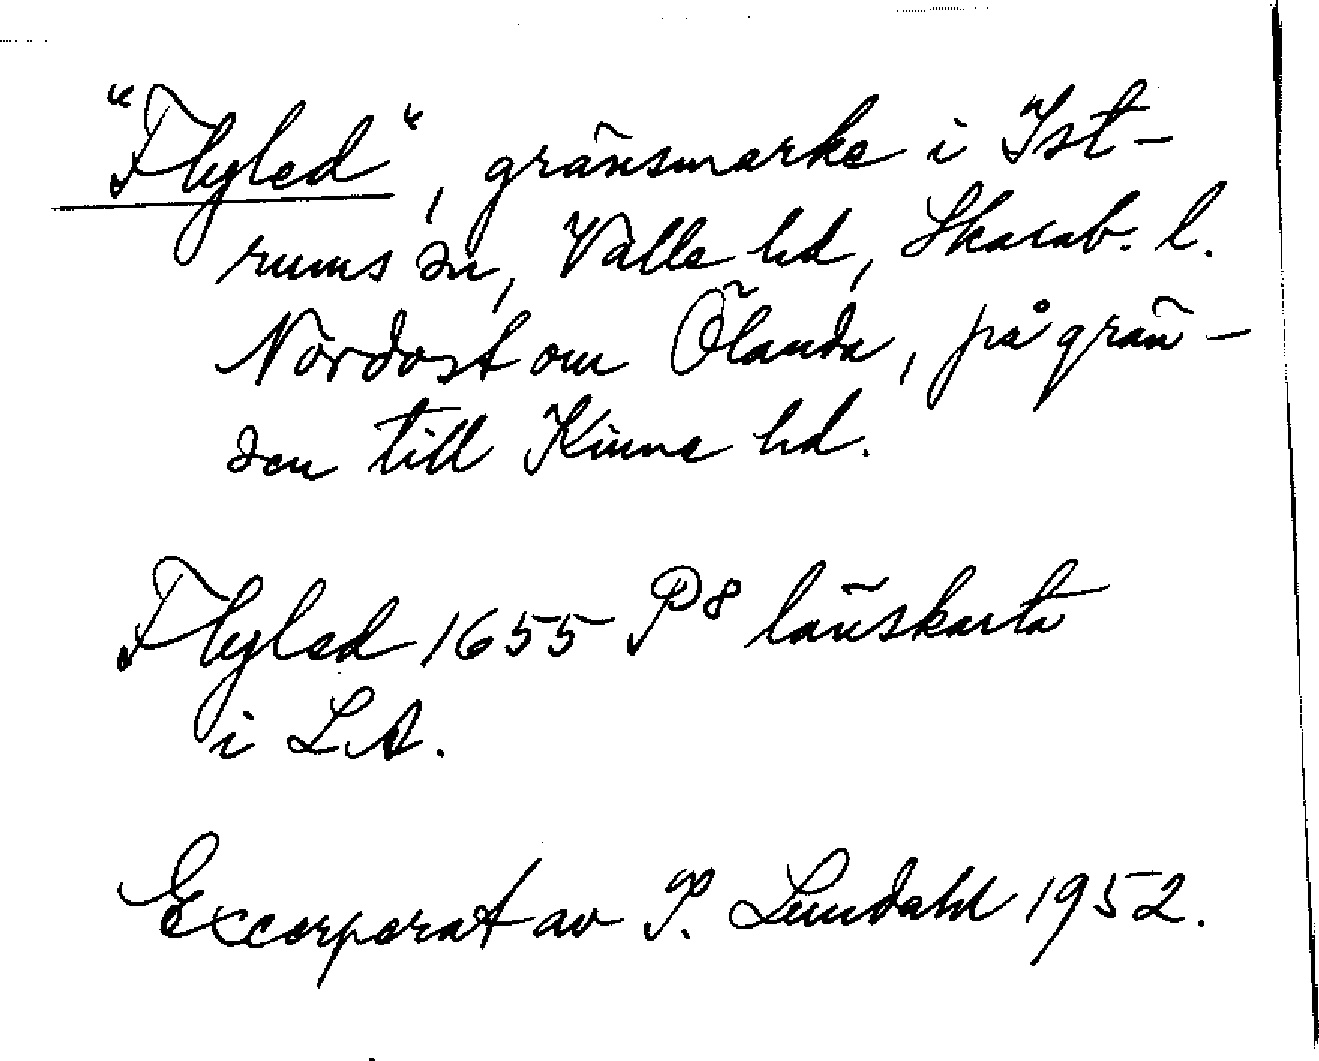 "Flyled", gränsmärke i Ist-
rums sn, Valle hd, Skarab. l.
Nordost om Ölanda, på grän-
sen till Kinne hd.
Flyled 1655 P8 länskarta
i L.A.
Excerperat av P. Lundahl 1952.